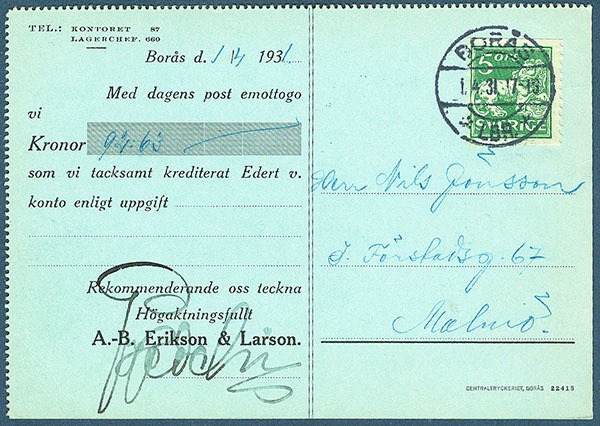 TEL.: KONTORET 87
LAGERCHEF. 660
Borås d. 1/4 1931.
Med dagens post emottogo
vi
Kronor 92.63
som vi tacksamt krediterat Edert v.
konto enligt uppgift
Rekommenderande oss teckna
Högaktningsfullt
A.-B. Erikson & Larson.
BORÅS
1.4.31.17-18
LBR.
5 ÖRE
SVERIGE
Herr Nils Jönsson
S. Förstadsg. 67
Malmö.
CENTRALTRYCKERIET, BORÅS 22415